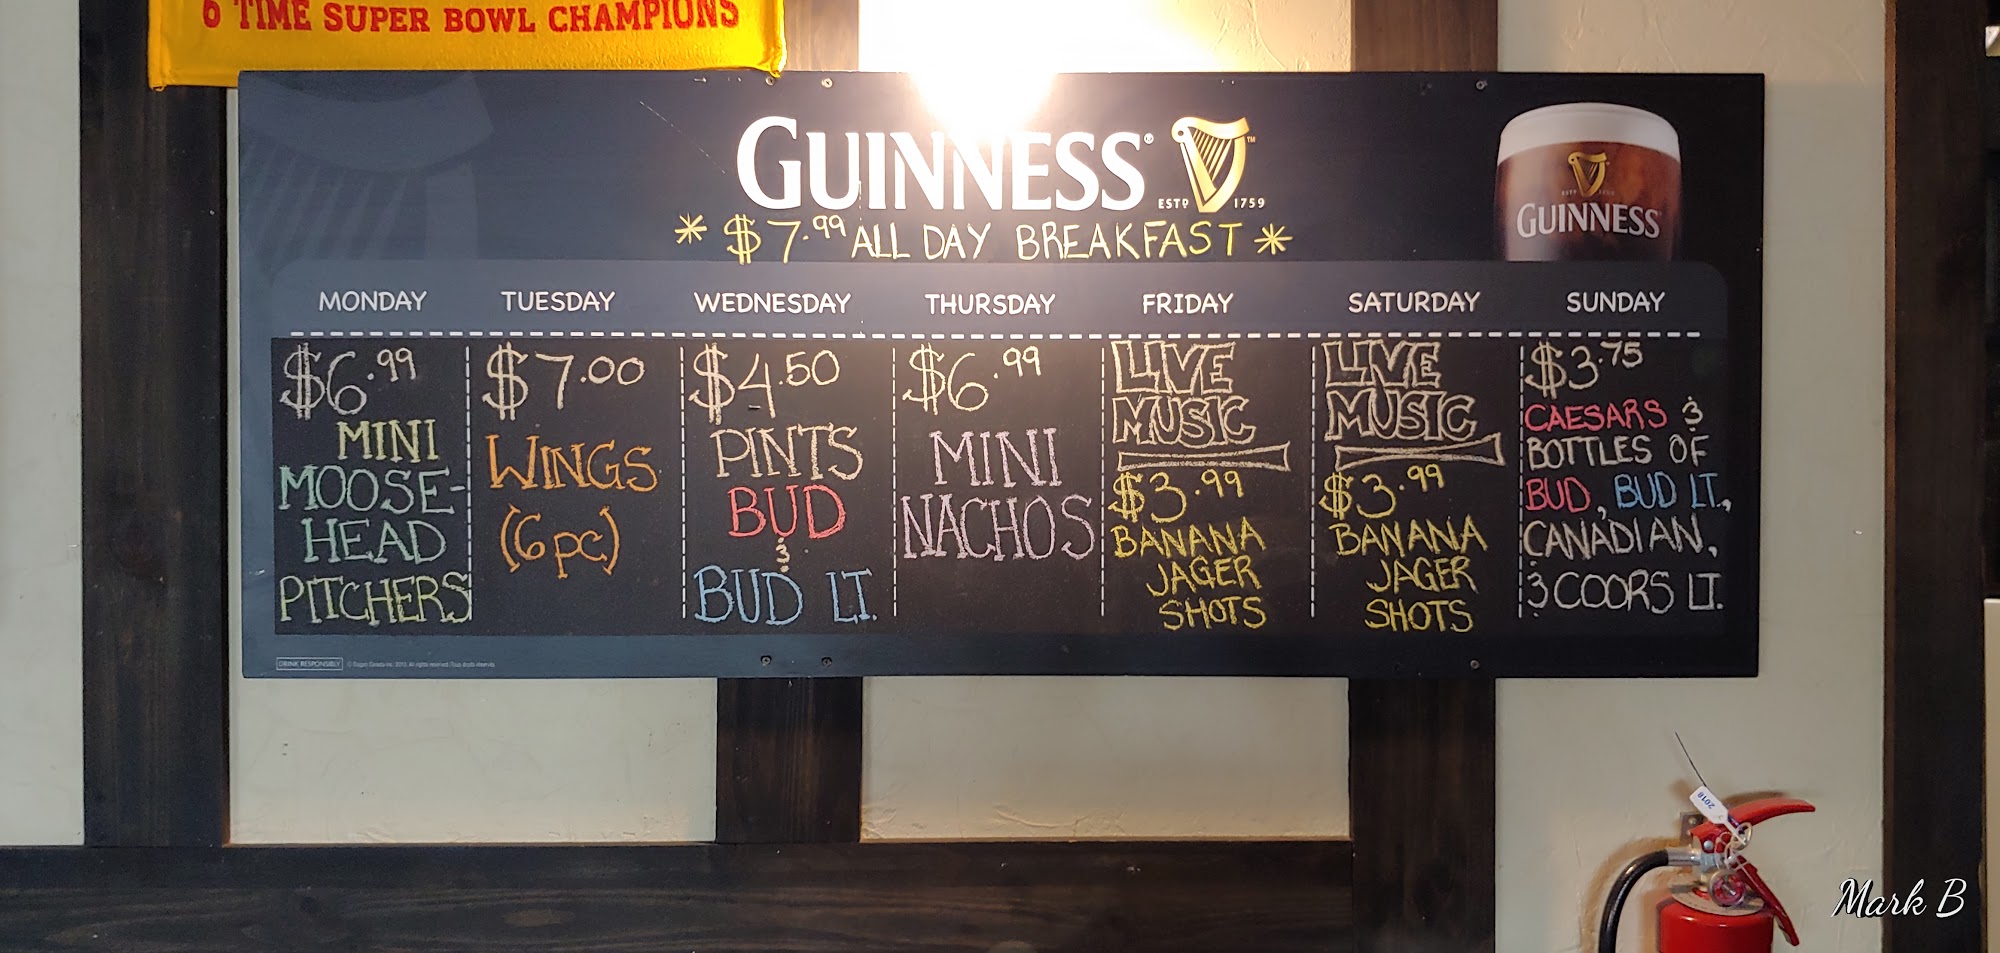 6 TIME SUPER BOWL CHAMPIONS
GUINNESS®
ESTD 1759
™
* $7.99 ALL DAY BREAKFAST *
GUINNESS
MONDAY
$6.99
MINI
MOOSE-
HEAD
PITCHERS
TUESDAY
$7.00
WINGS
(6pc)
WEDNESDAY
$4.50
PINTS
BUD
&
BUD LT.
THURSDAY
$6.99
MINI
NACHOS
FRIDAY
LIVE
MUSIC
$3.99
BANANA
JAGER
SHOTS
SATURDAY
LIVE
MUSIC
$3.99
BANANA
JAGER
SHOTS
SUNDAY
$3.75
CAESARS &
BOTTLES OF
BUD, BUD LT.,
CANADIAN,
& COORS LT.
DRINK RESPONSIBLY
2018
Mark B